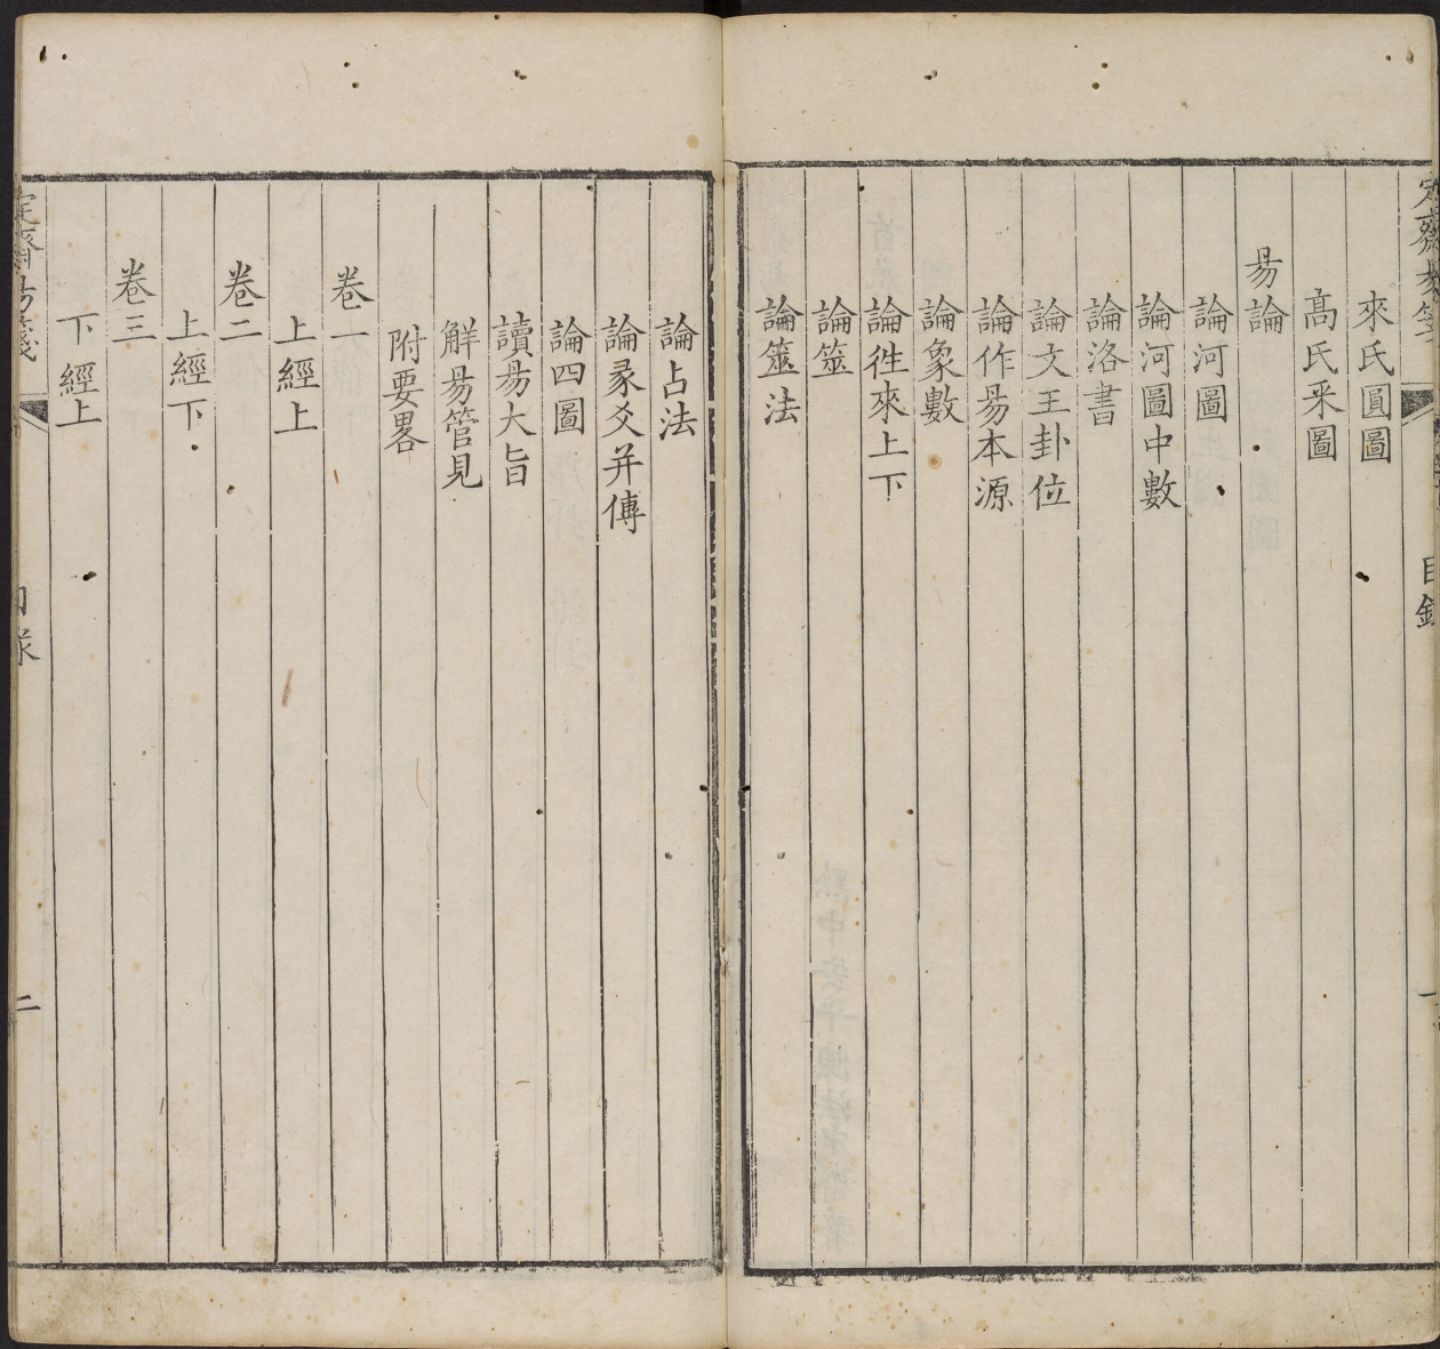 定齋易箋
目錄
一
來氏圓圖
高氏来圖
易論
論河圖
論河圖中數
論洛書
論文王卦位
論作易本源
論象數
論徃來上下
論筮
論筮法
論占法
論彖爻并傳
論四圖
讀易大旨
解易管見
附要畧
卷一
上經上
卷二
上經下
卷三
下經上
定齋易箋
目錄
二